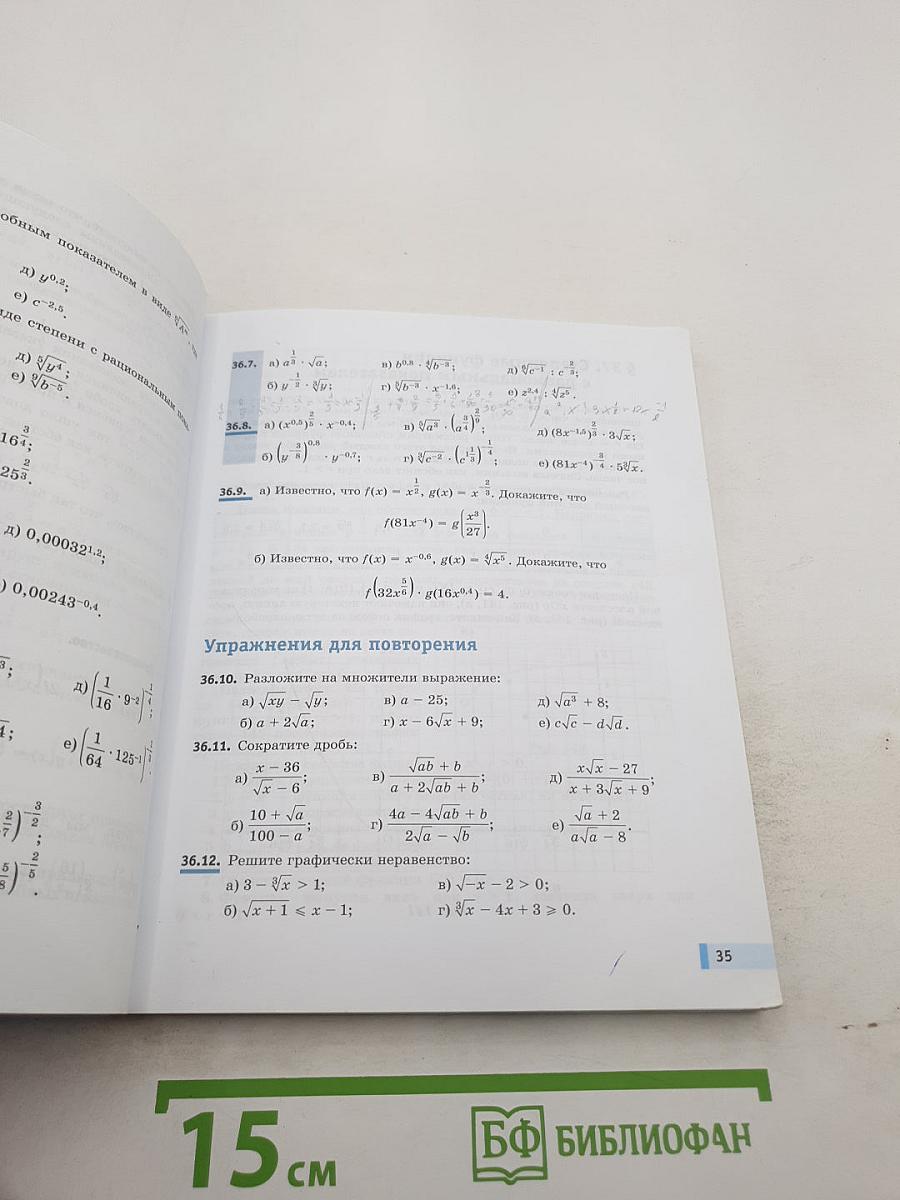 обным показателем в виде
д) y^{0,2};
е) c^{-2,5}.
де степени с рациональным
д) \sqrt[5]{y^4};
е) \sqrt[9]{b^{-5}}.
16^{\frac{3}{4}};
25^{\frac{2}{3}}.
д) 0,00032^{1,2};
) 0,00243^{-0,4}.
д) (\frac{1}{16} · 9^{-2})
е) (\frac{1}{64} · 125^{-1})
36.7. а) a^{\frac{1}{3}} · \sqrt{a}; в) b^{0,8} · \sqrt[4]{b^{-3}}; д) \sqrt[6]{c^{-1}} : c^{\frac{2}{3}};
б) y^{-\frac{1}{2}} · \sqrt[3]{y}; г) \sqrt[5]{b^{-3}} · x^{-1,6}; е) z^{2,4} : \sqrt[4]{z^5}.
36.8. а) (x^{0,5})^{\frac{2}{5}} · x^{-0,4}; в) \sqrt[6]{a^3} · (a^{\frac{3}{4}})^{\frac{2}{9}}; д) (8x^{-1,5})^{\frac{2}{3}} · 3\sqrt{x};
б) (y^{-\frac{3}{8}})^{0,8} · y^{-0,7}; г) \sqrt[3]{c^{-2}} · (c^{1\frac{1}{3}})^{-\frac{1}{4}}; е) (81x^{-4})^{-\frac{3}{4}} · 5\sqrt[3]{x}.
36.9. а) Известно, что f(x) = x^{\frac{1}{2}}, g(x) = x^{-\frac{2}{3}}. Докажите, что
f(81x^{-4}) = g(\frac{x^3}{27}).
б) Известно, что f(x) = x^{-0,6}, g(x) = \sqrt[4]{x^5}. Докажите, что
f(32x^{\frac{5}{6}}) · g(16x^{0,4}) = 4.
Упражнения для повторения
36.10. Разложите на множители выражение:
а) \sqrt{xy} − \sqrt{y}; в) a − 25; д) \sqrt{a^3} + 8;
б) a + 2\sqrt{a}; г) x − 6\sqrt{x} + 9; е) c\sqrt{c} − d\sqrt{d}.
36.11. Сократите дробь:
а) \frac{x − 36}{\sqrt{x} − 6}; в) \frac{\sqrt{ab} + b}{a + 2\sqrt{ab} + b}; д) \frac{x\sqrt{x} − 27}{x + 3\sqrt{x} + 9};
б) \frac{10 + \sqrt{a}}{100 − a}; г) \frac{4a − 4\sqrt{ab} + b}{2\sqrt{a} − \sqrt{b}}; е) \frac{\sqrt{a} + 2}{a\sqrt{a} − 8}.
36.12. Решите графически неравенство:
а) 3 − \sqrt[3]{x} > 1; в) \sqrt{−x} − 2 > 0;
б) \sqrt{x + 1} ⩽ x − 1; г) \sqrt[3]{x} − 4x + 3 ⩾ 0.
35
15 см
БФ БИБЛИОФАН